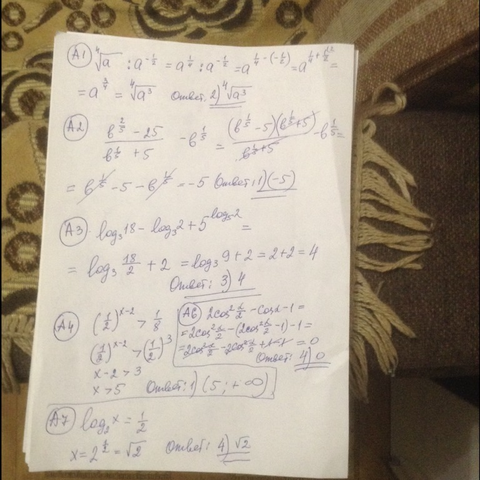 A1) ⁴√a : a^(-1/2) = a^(1/4) : a^(-1/2) = a^(1/4 - (-1/2)) = a^(1/4 + 1/2) =
= a^(3/4) = ⁴√a³ Ответ: 2) ⁴√a³
A2) (b^(2/5) - 25)/(b^(1/5) + 5) - b^(1/5) = (b^(1/5) - 5)(b^(1/5) + 5)/(b^(1/5) + 5) - b^(1/5) =
= b^(1/5) - 5 - b^(1/5) = -5 Ответ: 1) (-5)
A3) log₃18 - log₃2 + 5^(log₅2) =
= log₃ 18/2 + 2 = log₃9 + 2 = 2 + 2 = 4
Ответ: 3) 4
A4) (1/2)^(x-2) > 1/8
(1/2)^(x-2) > (1/2)^3
x - 2 > 3
x > 5 Ответ: 1) (5; +∞)
A6) 2cos² x/2 - cosx - 1 =
= 2cos² x/2 - (2cos² x/2 - 1) - 1 =
= 2cos² x/2 - 2cos² x/2 + 1 - 1 = 0
Ответ: 4) 0
A7) log₂x = 1/2
x = 2^(1/2) = √2 Ответ: 4) √2